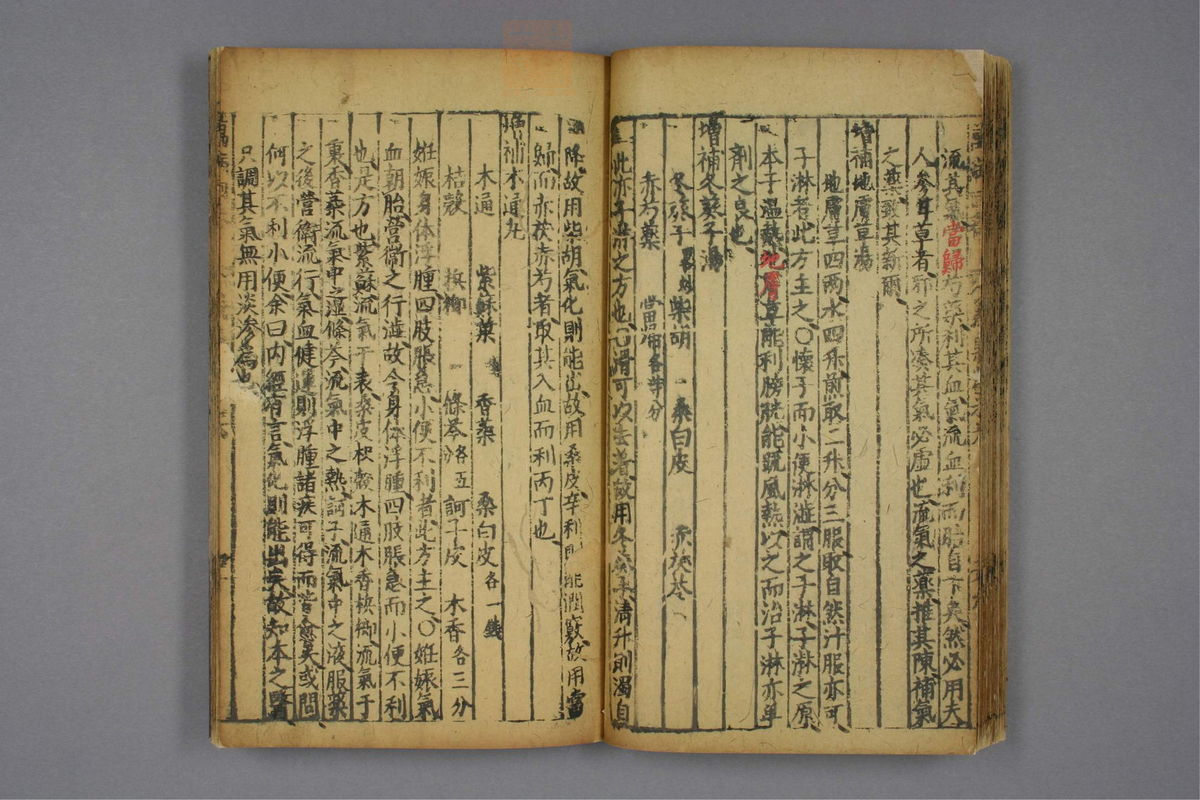 流其氣當歸芍藥利其血氣流血利而胎自下矣然必用夫
人參甘草者邪之所凑其氣必虛也流氣之藥推其陳補氣
之藥致其新爾
增補地膚草湯
地膚草四兩水四升煎取二升分三服取自然汁服亦可
子淋者此方主之〇懷子而小便淋澁謂之子淋子淋之原
本乎溫熱地膚草能利膀胱能踈風熱以之而治子淋亦單
劑之良也
增補冬葵子湯
冬葵子 柴胡 桑白皮 赤茯苓
赤芍藥 當歸各等分
此亦子淋之方也滑可以去著故用冬葵子清升則濁自
降故用柴胡氣化則能出故用桑皮辛利則能潤竅故用當
歸而赤茯赤芍者取其入血而利丙丁也
增補木通丸
木通 紫蘇葉 香薷 桑白皮各一錢
枯殼 檳榔 條芩各五 訶子皮 木香各三分
姙娠身体浮腫四肢脹急小便不利者此方主之〇姙娠氣
血朝胎營衛之行澁故令身体浮腫四肢脹急而小便不利
也是方也紫蘇流氣于表桑皮枳殼木通木香檳榔流氣于
裏香薷流氣中之濕條芩流氣中之熱訶子流氣中之液服藥
之後營衛流行氣血健運則浮腫諸疾可得而皆愈矣或問
何以不利小便余曰内經有言氣化則能出矣故知本之醫
只調其氣無用淡滲為也